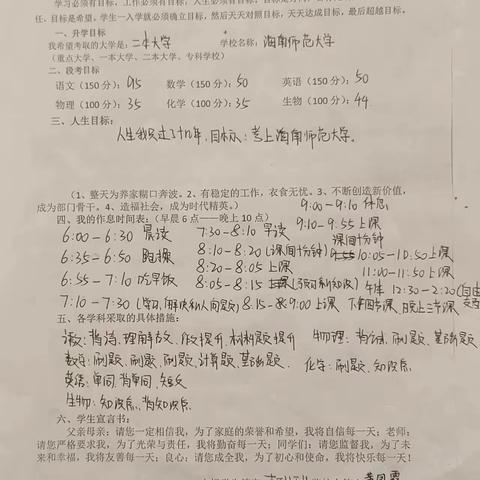 学习必须有目标，工作必须有目标，人生必须有目标，
任，目标是希望。学生一入学就必须确立目标，然后天天对照目标，天天达成目标，最后超越目标。
一、升学目标
我希望考取的大学是：二本大学 学校名称：海南师范大学
（重点大学、一本大学、二本大学、专科学校）
二、段考目标
语文（150 分）：95 数学（150 分）：50 英语（150 分）：50
物理（100 分）：35 化学（100 分）：35 生物（100 分）：44
三、人生目标：
人生我只过了十几年，目标：考上海南师范大学。
（1、整天为养家糊口奔波。2、有稳定的工作，衣食无忧。3、不断创造新价值，
成为部门骨干。4、造福社会，成为时代精英。） 9:00-9:10 休息
四、我的作息时间表：（早晨 6 点——晚上 10 点） 9:10-9:55 上课
6:00-6:30 晨读 7:30-8:10 早读 课间十分钟
6:35-6:50 跑操 8:10-8:20（课间十分钟） 10:05-10:50 上课
8:20-8:05 上课 11:00-11:50 上课
6:55-7:10 吃早饭 8:05-8:15 午休 12:30-2:20
7:10-7:30 8:15-9:00 上课 晚上三节课
五、各学科采取的具体措施：
语文：背诗，理解 提升 物理：刷题、基础题
数学：刷题、刷题、刷题、计算题、基础题 化学：刷题、知识点
英语：单词，背单词，短文
生物：知识点、背知识点
六、学生宣言书：
父亲母亲：请您一定相信我，为了家庭的荣誉和希望，我将自信每一天；老师：
请您严格要求我，为了光荣与责任，我将勤奋每一天；同学们：请您监督我，为了未
来和幸福，我将友善每一天；良心：请您成全我，为了初心和使命，我将快乐每一天！